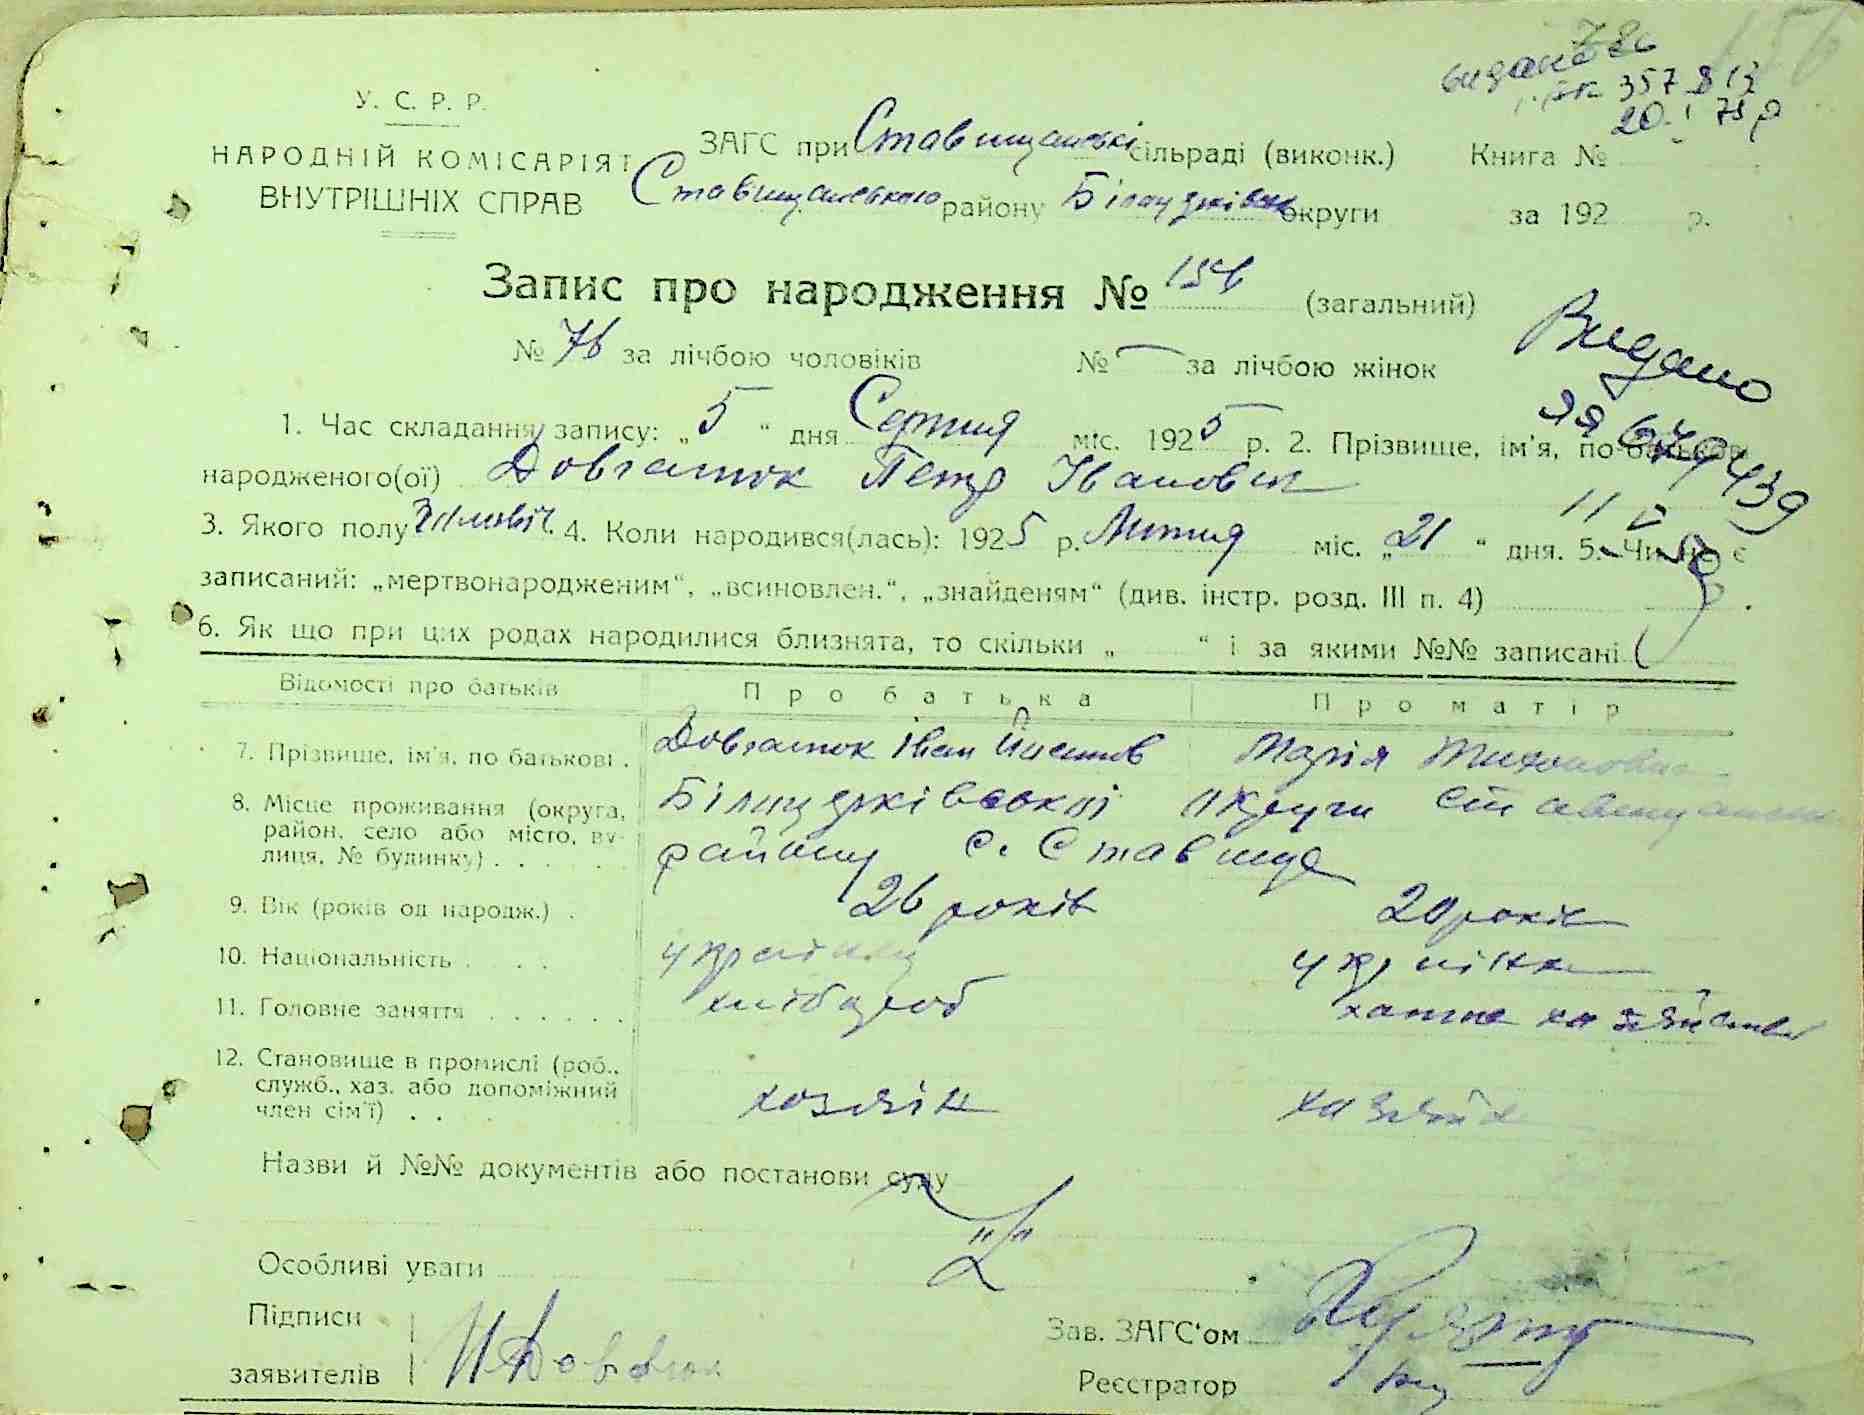 156
видано 786
357813
20. I 75 р
У. С. Р. Р.
НАРОДНІЙ КОМІСАРІЯТ
ВНУТРІШНІХ СПРАВ
ЗАГС при Ставищанські сільраді (виконк.) Книга №
Ставищанського району Білоцерківськ округи за 192 р.
Запис про народження № 156 (загальний)
№ 76 за лічбою чоловіків № — за лічбою жінок
Видано
1. Час складання запису: „5“ дня Серпня міс. 1925 р. 2. Прізвище, ім'я, по батькові
народженого(ої) Довгалюк Петр Івановін
3. Якого полу 4. Коли народився(лась): 1925 р. Липня міс. „21“ дня. 5. Чи не є
записаний: „мертвонародженим“, „всиновлен.“, „знайденям“ (див. інстр. розд. III п. 4)
6. Як що при цих родах народилися близнята, то скільки „ “ і за якими №№ записані
Відомості про батьків Про батька Про матір
7. Прізвище, ім'я, по батькові . Довгалюк Іван Марія Тихоновна
8. Місце проживання (округа, район, село або місто, вулиця, № будинку) . . . . . Білоцерківської округи Ставищанськ
району с. Ставище
9. Вік (років од народж.) . 26 років 20 років
10. Національність . . . . українец українка
11. Головне заняття . . . . . . хлібороб хатне хозяйство
12. Становище в промислі (роб.,
служб., хаз. або допоміжний
член сім'ї) . . . хозяїн хазяйка
Назви й №№ документів або постанови суду
Особливі уваги
Підписи
заявителів И Довгалюк
Зав. ЗАГС'ом
Реєстратор